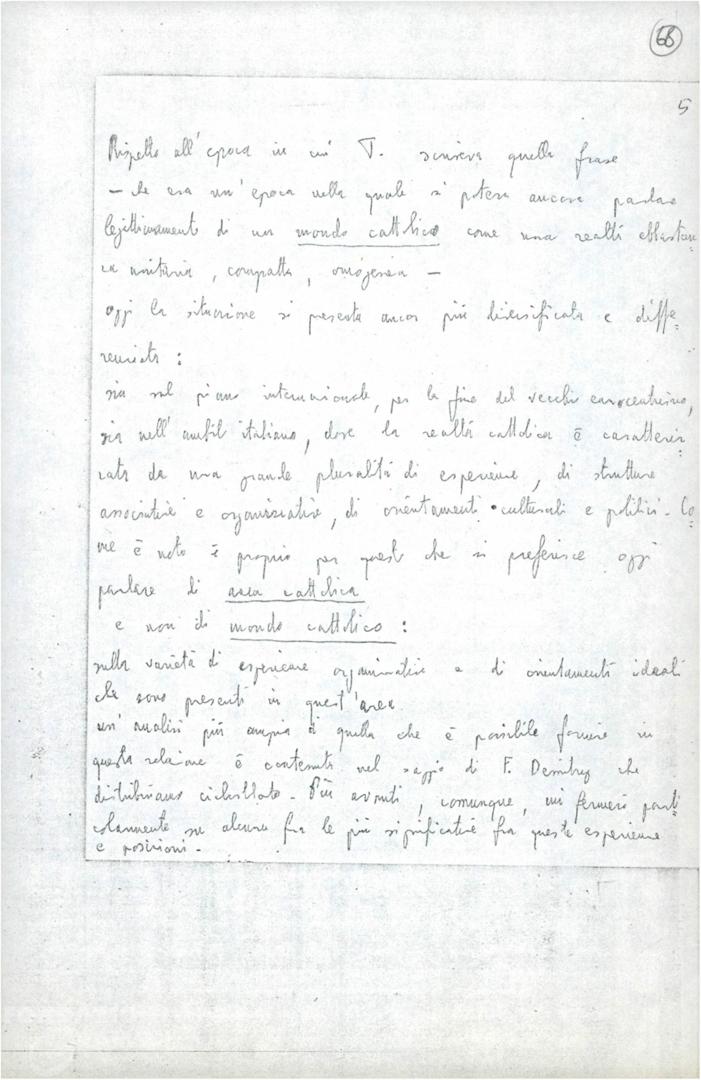 68
5
Rispetto all'epoca in cui T. scriveva quella frase
– che era un'epoca nella quale si poteva ancora parlare
legittimamente di un mondo cattolico come una realtà abbastan=
za unitaria, compatta, omogenea –
oggi la situazione si presenta ancor più diversificata e diffe=
renziata:
sia sul piano internazionale, per la fine del vecchio eurocentrismo,
sia nell'ambito italiano, dove la realtà cattolica è caratteriz=
zata da una grande pluralità di esperienze, di strutture
associative e organizzative, di orientamenti culturali e politici. Co=
me è noto è proprio per questo che si preferisce oggi
parlare di area cattolica
e non di mondo cattolico:
sulla varietà di esperienze organizzative e di orientamenti ideali
che sono presenti in quest'area
un'analisi più ampia di quella che è possibile fornire in
questa relazione è contenuta nel saggio di F. che
distribuiamo ciclostilato. Più avanti, comunque, mi fermerò parti=
colarmente su alcune fra le più significative fra queste esperienze
e posizioni.